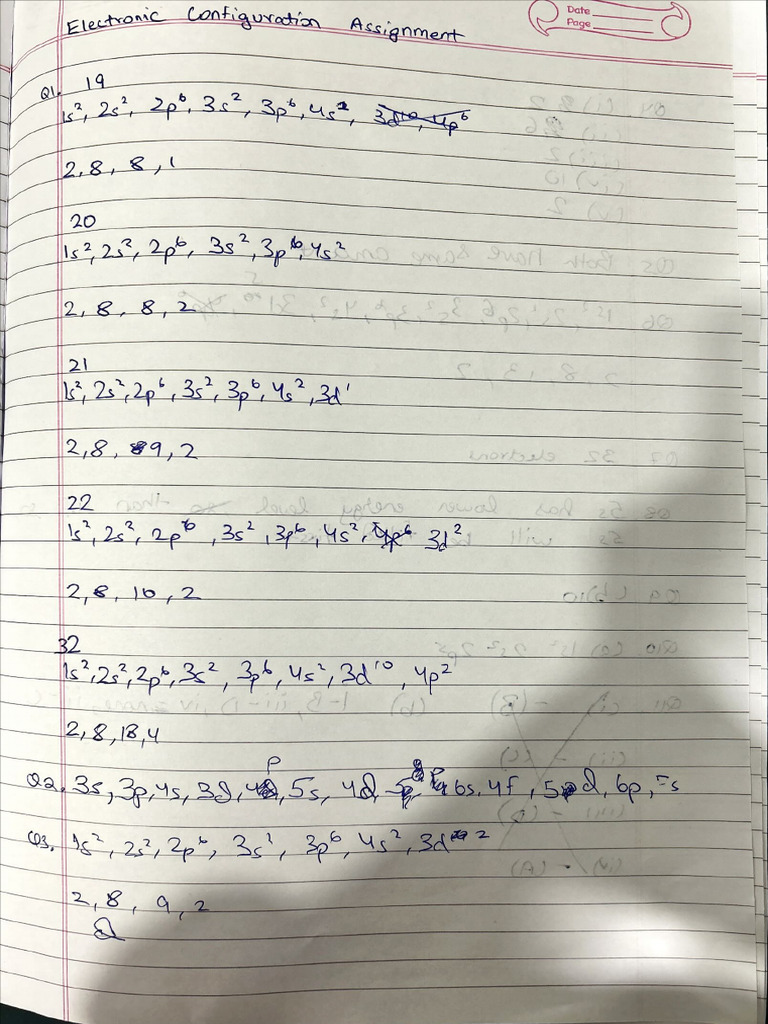 Date
Page
Electronic Configuration Assignment
Q1. 19
1s², 2s², 2p⁶, 3s², 3p⁶, 4s¹, 3d¹⁰, 4p⁶
2, 8, 8, 1
20
1s², 2s², 2p⁶, 3s², 3p⁶, 4s²
2, 8, 8, 2
21
1s², 2s², 2p⁶, 3s², 3p⁶, 4s², 3d¹
2, 8, 9, 2
22
1s², 2s², 2p⁶, 3s², 3p⁶, 4s², 4p⁶ 3d²
2, 8, 10, 2
32
1s², 2s², 2p⁶, 3s², 3p⁶, 4s², 3d¹⁰, 4p²
2, 8, 18, 4
Q2. 3s, 3p, 4s, 3d, 4p, 5s, 4d, 5p, 6s, 4f, 5d, 6p, 7s
Q3. 1s², 2s², 2p⁶, 3s¹, 3p⁶, 4s², 3d²
2, 8, 9, 2